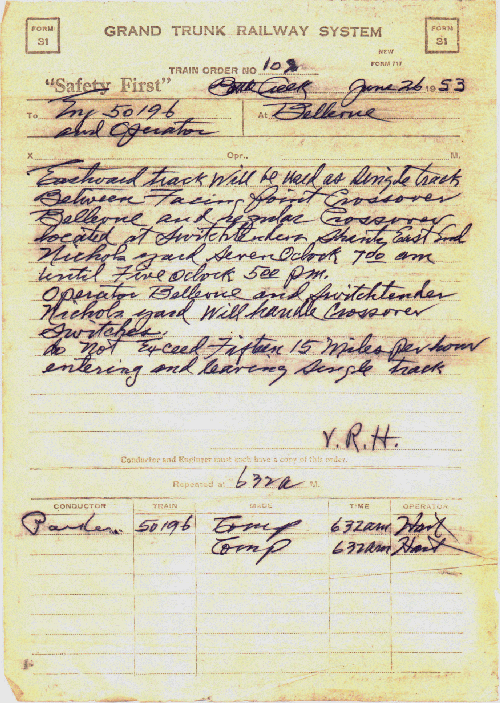 FORM 31
GRAND TRUNK RAILWAY SYSTEM
FORM 31
TRAIN ORDER NO 102
NEW FORM 717
"Safety First"
Creek June 26 1953
To Eng 50196 At Bellevue
and Operator
X Opr., M.
Eastward track Will be used as single track
Between Facing Point Crossover
Bellevue and regular Crossover
located at Switchtenders Shanty East End
Nichols yard Seven Oclock 700 am
until Five Oclock 500 Pm.
Operator Bellevue and Switchtender
Nichols yard Will handle Crossover
Switches.
do not Exceed Fifteen 15 Miles per hour
entering and leaving Single track
V. R. H.
Conductor and Engineer must each have a copy of this order.
Repeated at 632a M.
CONDUCTOR TRAIN MADE TIME OPERATOR
50196 Comp 632am Hart
Comp 632am Hart